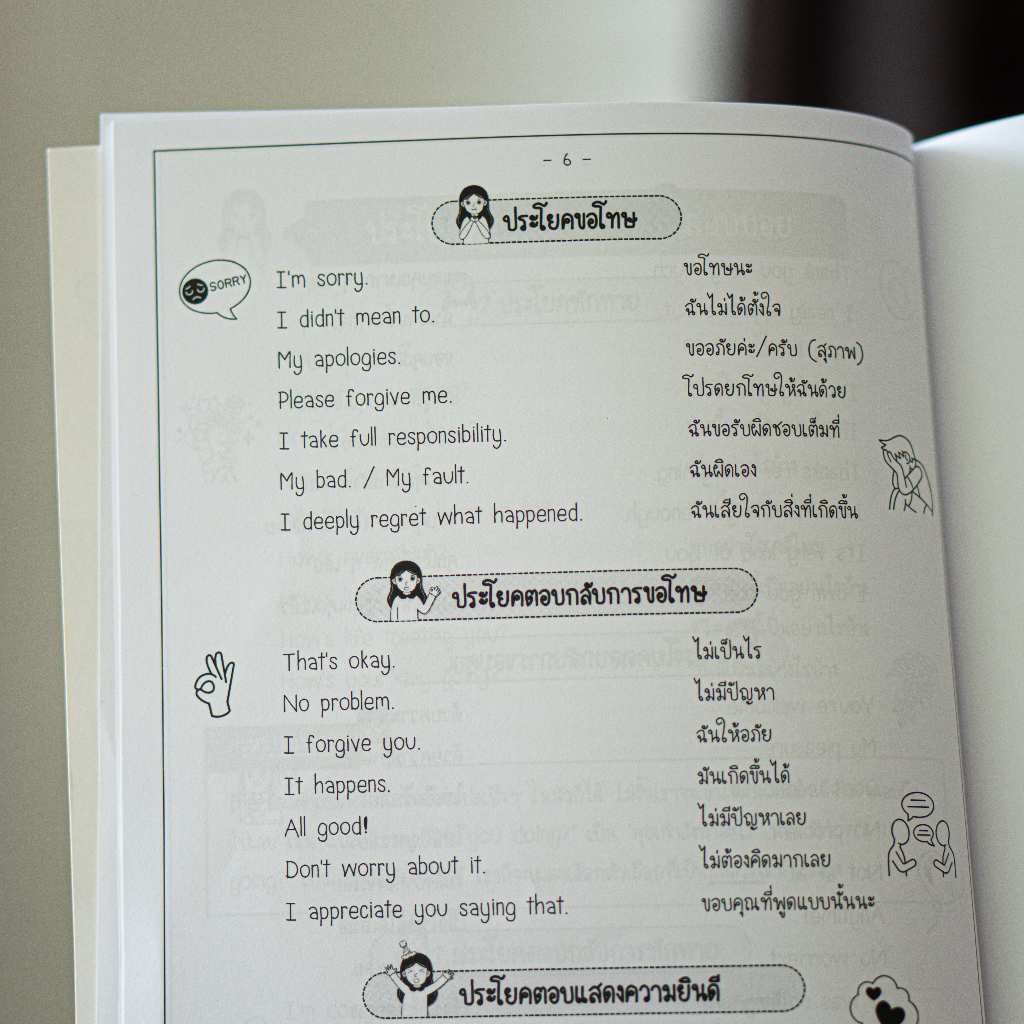 - 6 -
ประโยคขอโทษ
SORRY
I'm sorry. ขอโทษนะ
I didn't mean to. ฉันไม่ได้ตั้งใจ
My apologies. ขออภัยค่ะ/ครับ (สุภาพ)
Please forgive me. โปรดยกโทษให้ฉันด้วย
I take full responsibility. ฉันขอรับผิดชอบเต็มที่
My bad. / My fault. ฉันผิดเอง
I deeply regret what happened. ฉันเสียใจกับสิ่งที่เกิดขึ้น
ประโยคตอบกลับการขอโทษ
That's okay. ไม่เป็นไร
No problem. ไม่มีปัญหา
I forgive you. ฉันให้อภัย
It happens. มันเกิดขึ้นได้
All good! ไม่มีปัญหาเลย
Don't worry about it. ไม่ต้องคิดมากเลย
I appreciate you saying that. ขอบคุณที่พูดแบบนั้นนะ
ประโยคตอบแสดงความยินดี